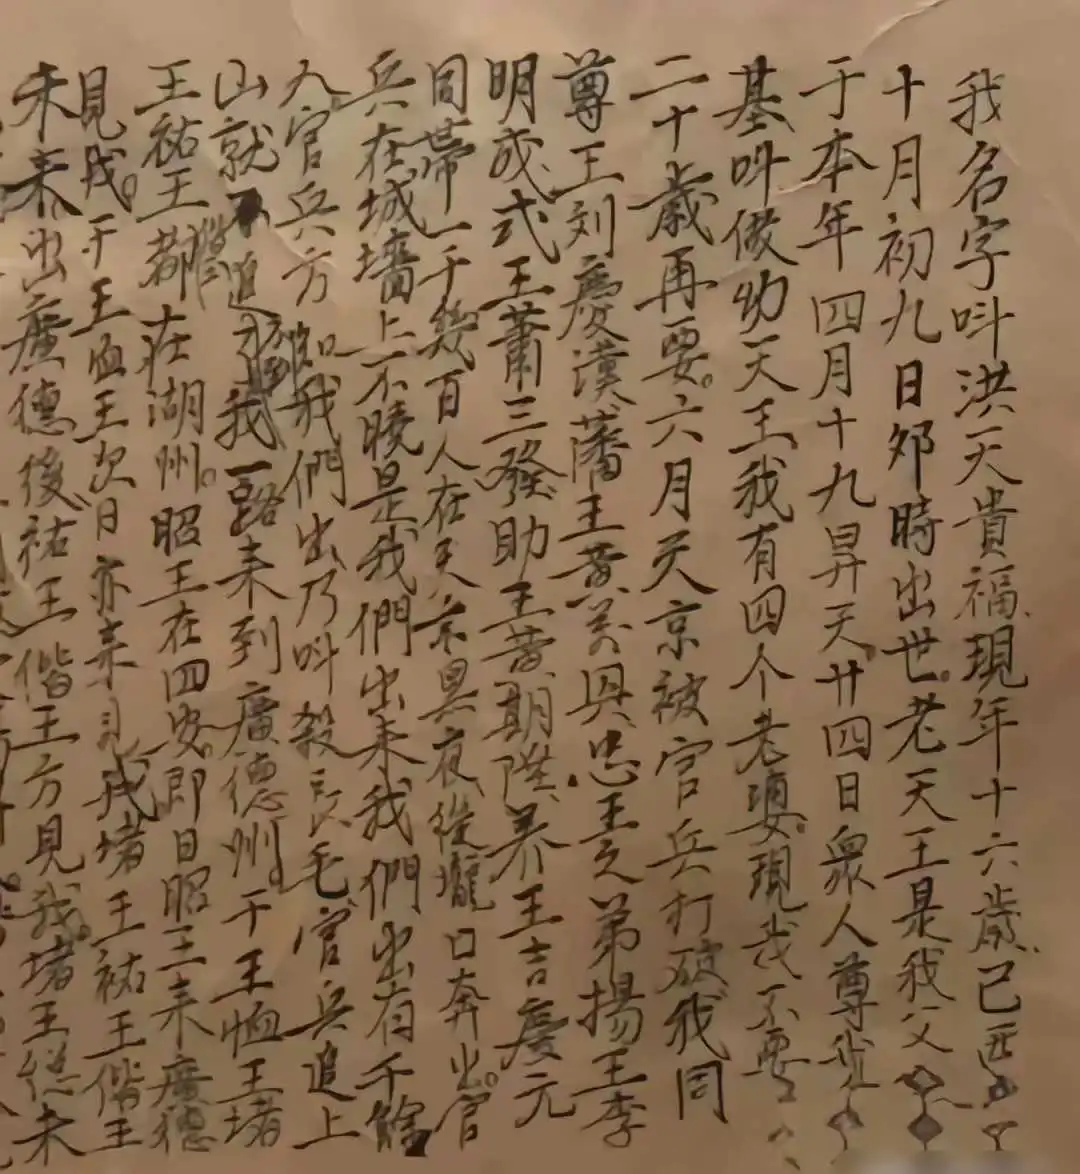 我名字呌洪天貴福現年十六歲己酉
十月初九日卯時出世老天王是我父
于本年四月十九昇天廿四日眾人尊我
基呌做幼天王我有四个老婆現我不要
二十歲再要六月天京被官兵打破我同
尊王刘慶漢藩王黃万興忠王之弟揚王李
明成式王蕭三發助王黃期陞养王吉慶元
同帶一千幾百人在天京是夜從壠口奔出官
兵在城墻上不曉是我們出來我們出有千餘
人官兵方知我們出乃呌殺長毛官兵追上
山就追我一路來到廣德州干王恤王堵
王祐王都在湖州昭王在四安即日昭王來廣德
見我干王恤王次日亦來見我堵王祐王偕王
未來出廣德後祐王偕王方見我堵王總未